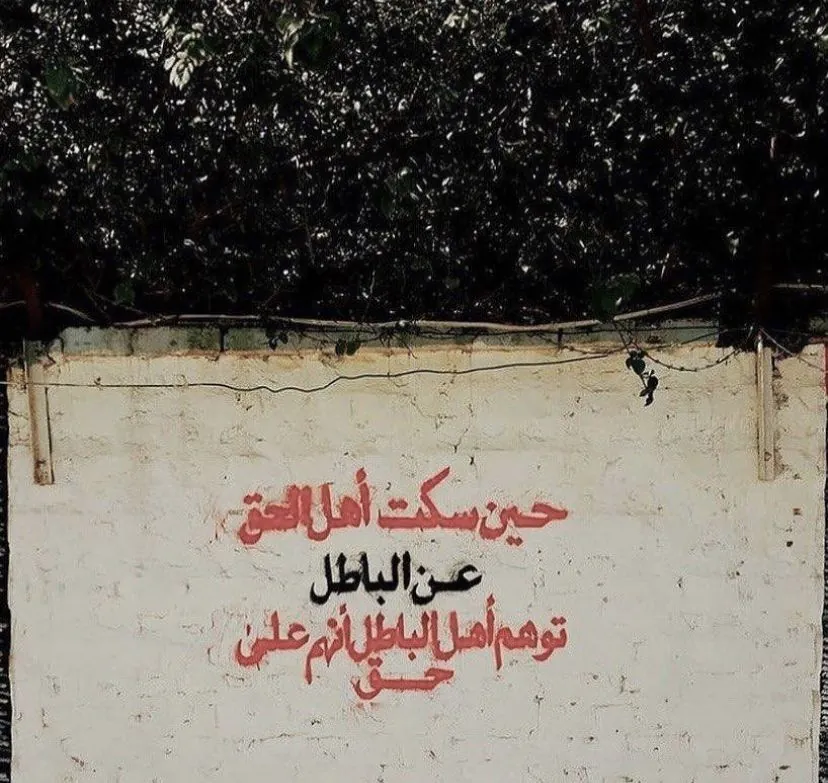 حين سكت أهل الحق
عن الباطل
توهم أهل الباطل أنهم على
حق